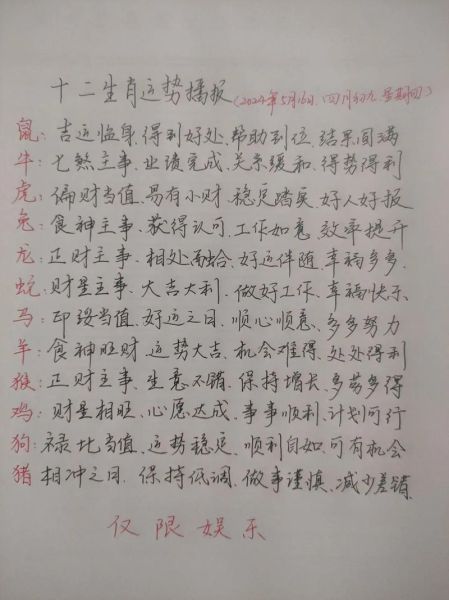 十二生肖运势播报(2024年5月16日.四月初九.星期四)
鼠:吉运临身、得到好处、帮助到位、结果圆满
牛:七煞主事、业绩完成、关系缓和、得势得利
虎:偏财当值、易有小财、稳定踏实、好人好报
兔:食神主事、获得认可、工作如意、效率提升
龙:正财主事、相处融洽、好运伴随、幸福多多.
蛇:财星主事、大吉大利、做好工作、幸福快乐、
马:印绶当值、好运之日、顺心顺意、多多努力
羊:食神旺财、运势大吉、机会难得、处处得利
猴:正财主事、生意不错、保持增长、多劳多得
鸡:财星相旺、心愿达成、事事顺利、计划可行
狗:禄比当值、运势稳定、顺利自如、可有机会
猪 相冲之日、保持低调、做事谨慎、减少差错
仅限娱乐